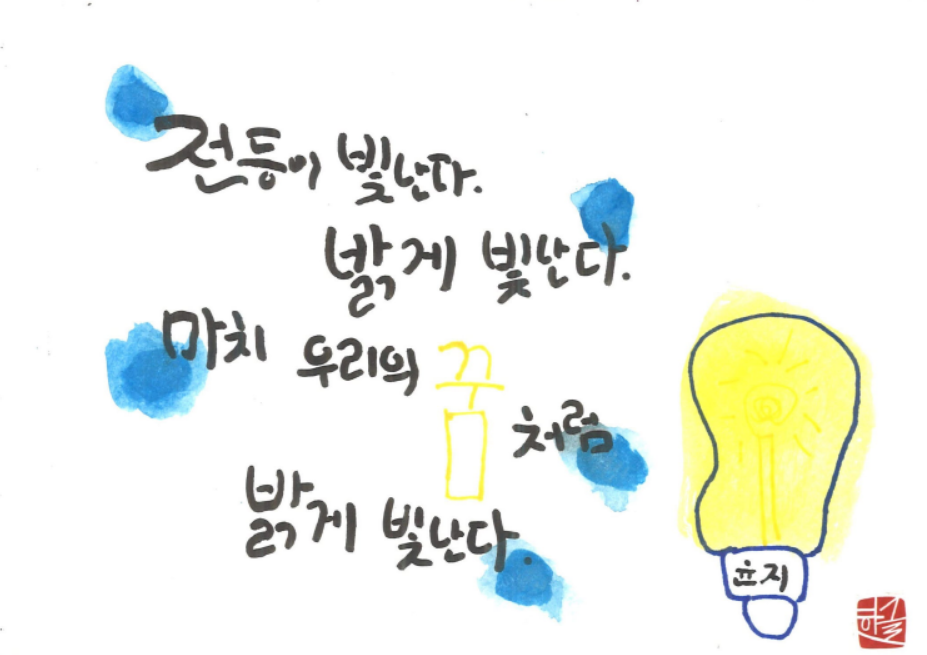 전등이 빛난다.
밝게 빛난다.
마치 우리의 꿈처럼
밝게 빛난다.
윤지